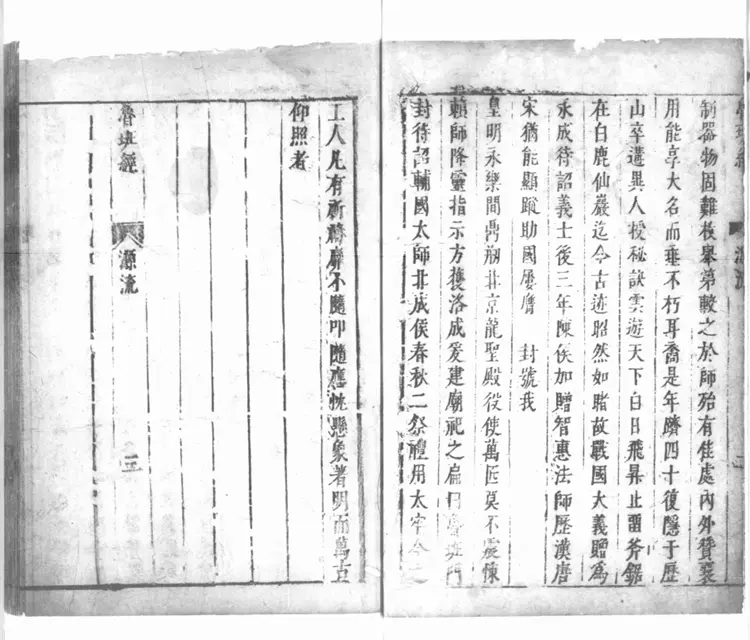 制器物固難枚舉第較之於師殆有佳處內外贊襄
用能享大名而垂不朽耳裔是年躋四十復隱于歷
山卒遘異人授秘訣雲遊天下白日飛昇止畱斧鋸
在白鹿仙巖迄今古迹昭然如睹故戰國大義贈爲
永成待詔義士後三年陳侯加贈智惠法師歷漢唐
宋猶能顯蹤助國屢膺 封號我
皇明永樂間鼎刱北京龍聖殿役使萬匠莫不震悚
賴師降靈指示方獲洛成爰建廟祀之扁曰魯班門
封待詔輔國太師北成侯春秋二祭禮用太牢今之
工人凡有祈禱靡不隨叩隨應忱懸象著明而萬古
仰照者
魯班經 源流 三